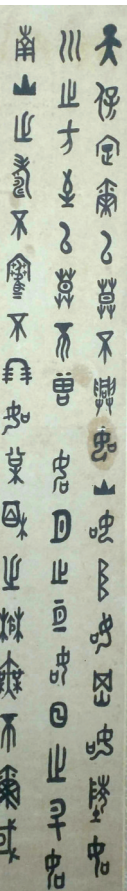 天保定爾以莫不興如山如阜如岡如陵如
川之方至以莫不曾如月之亙如日之升如
南山之壽不騫不崩如松柏之茂無不爾或